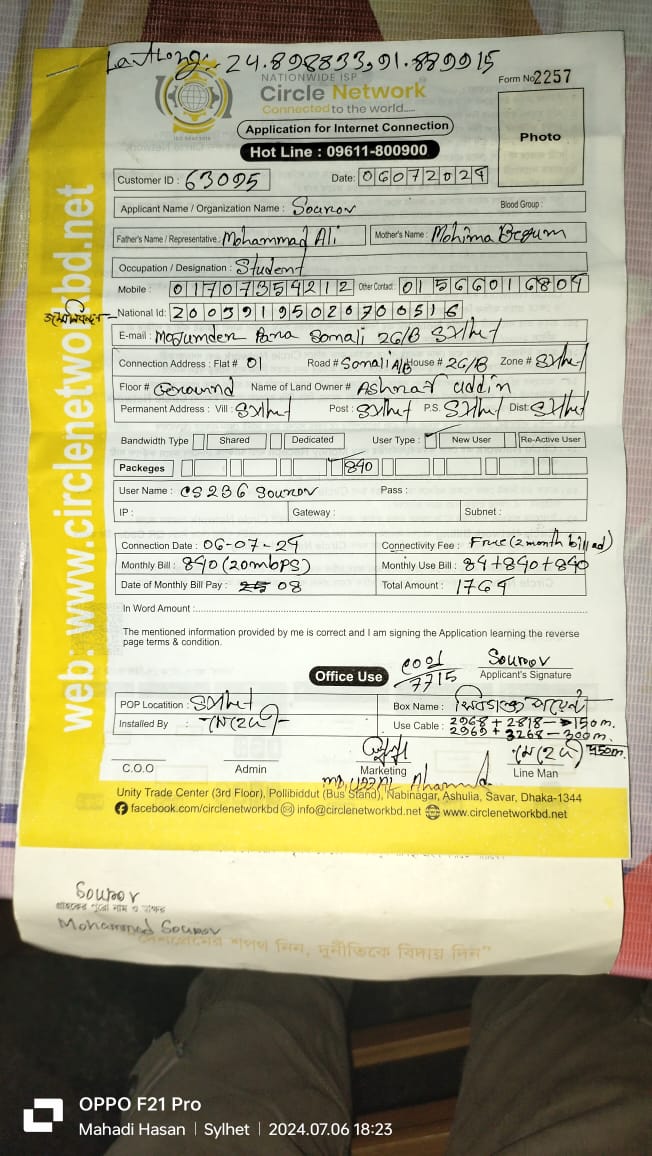 Lat Long: 24.898833, 91.889915
NATIONWIDE ISP
Circle Network
Connected to the world.....
Form No 2257
Application for Internet Connection
Hot Line : 09611-800900
Photo
Customer ID : 63095
Date: 06072024
Applicant Name / Organization Name : Sourov
Blood Group :
Father's Name / Representative : Mohammad Ali
Mother's Name : Mohima Begum
Occupation / Designation : Student
Mobile : 01707354212 Other Contact : 01566016804
National Id: 20039195020700516
E-mail : Mojumder Para Sonali 26/B Sylhet
Connection Address : Flat # 01 Road # Sonali A/B House # 26/B Zone # Sylhet
Floor # Ground Name of Land Owner # Ashraf uddin
Permanent Address : Vill : Sylhet Post : Sylhet P.S. Sylhet Dist: Sylhet
Bandwidth Type Shared Dedicated User Type : New User Re-Active User
Packeges 840
User Name : CS236 Sourov Pass :
IP : Gateway : Subnet :
Connection Date : 06-07-24
Connectivity Fee : Free (2 month bill ad)
Monthly Bill : 840 (20mbps)
Monthly Use Bill : 84+840+840
Date of Monthly Bill Pay : 08
Total Amount : 1764
In Word Amount :
The mentioned information provided by me is correct and I am signing the Application learning the reverse
page terms & condition.
Office Use
7715
Sourov
Applicant's Signature
POP Locatition : Sylhet
Box Name :
Installed By :
Use Cable : 2968 + 2818 - 150m.
2969 + 3268 - 300m.
450m.
C.O.O Admin Marketing Line Man
Ahammed
Unity Trade Center (3rd Floor), Pollibiddut (Bus Stand), Nabinagar, Ashulia, Savar, Dhaka-1344
facebook.com/circlenetworkbd info@circlenetworkbd.net www.circlenetworkbd.net
web: www.circlenetworkbd.net
Sourov
গ্রাহকের পুরো নাম ও স্বাক্ষর
Mohammad Sourov
দেশপ্রেমের শপথ নিন, দুর্নীতিকে বিদায় দিন"
OPPO F21 Pro
Mahadi Hasan | Sylhet | 2024.07.06 18:23